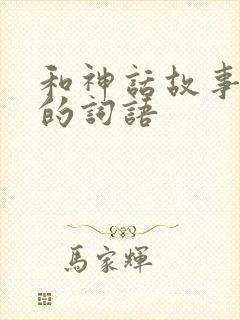 和神話故事
的詞語
馬家輝